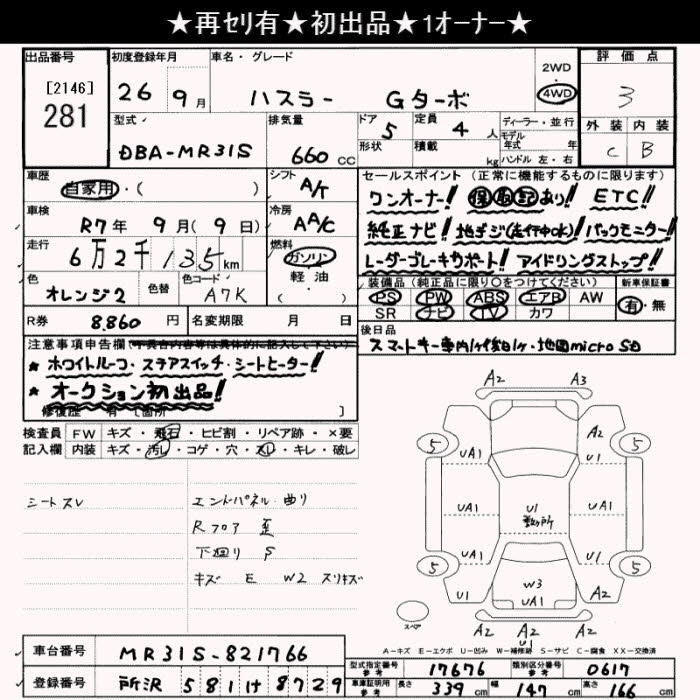 ★再ｾﾘ有★初出品★1ｵｰﾅｰ★
出品番号
[2146]
281
初度登録年月
26年 9月
車名・グレード
ハスラー Gターボ
2WD
4WD
評価点
3
外装 内装
C B
型式
DBA-MR31S
排気量
660 CC
ドア 5
形状
定員 4 人
積載 kg
ディーラー・並行
モデル年式 年式
ハンドル 左・右
車歴
自家用・( )
シフト
A/T
車検
R7年 9月(9日)
冷房
AAC
走行
6万2千135km
燃料
ガソリン
軽油
( )
色
オレンジ2
色替
色コード
A7K
R券 8,860 円
名変期限 月 日
セールスポイント (正常に機能するものに限ります)
ワンオーナー!! 保取記あり!! ETC!!
純正ナビ! 地デジ(走行中OK)! バックモニター!
レーダーブレーキサポート! アイドリングストップ!!
装備品(純正品に限り○をつけてください)
PS PW ABS エアB AW
SR ナビ TV カワ
新車保証書
有・無
後日品
スマートキー車内1ケ後日1ケ・地図microSD
注意事項申告欄(不具合内容等は具体的に記入して下さい)
★ホワイトルーフ・ステアスイッチ・シートヒーター!!
★オークション初出品!!
修復歴 有 [箇所 ]
検査員 FW キズ・飛石・ヒビ割・リペア跡・×要
記入欄 内装 キズ・汚し・コゲ・穴・スレ・キレ・破し
シートスレ
エンドパネル 曲り
Rフロア 歪
下回り S
キズ E W2 スリキズ
A2 A3
5 A2 5
UA1 U1
UA1 U1 数ヶ所 UA1
UA1 U1
5 5
W3
U1 UA1 A2
A2 A2 U1 A2
スペア
A-キズ E-エクボ U-凹み W-補修跡 S-サビ C-腐食 XX-交換済
車台番号 MR31S-821766
登録番号 所沢 581 け 8729
型式指定番号 参考 17676
類別区分番号 参考 0617
車庫証明用 参考 長さ 339 cm 幅 147 cm 高さ 166 cm